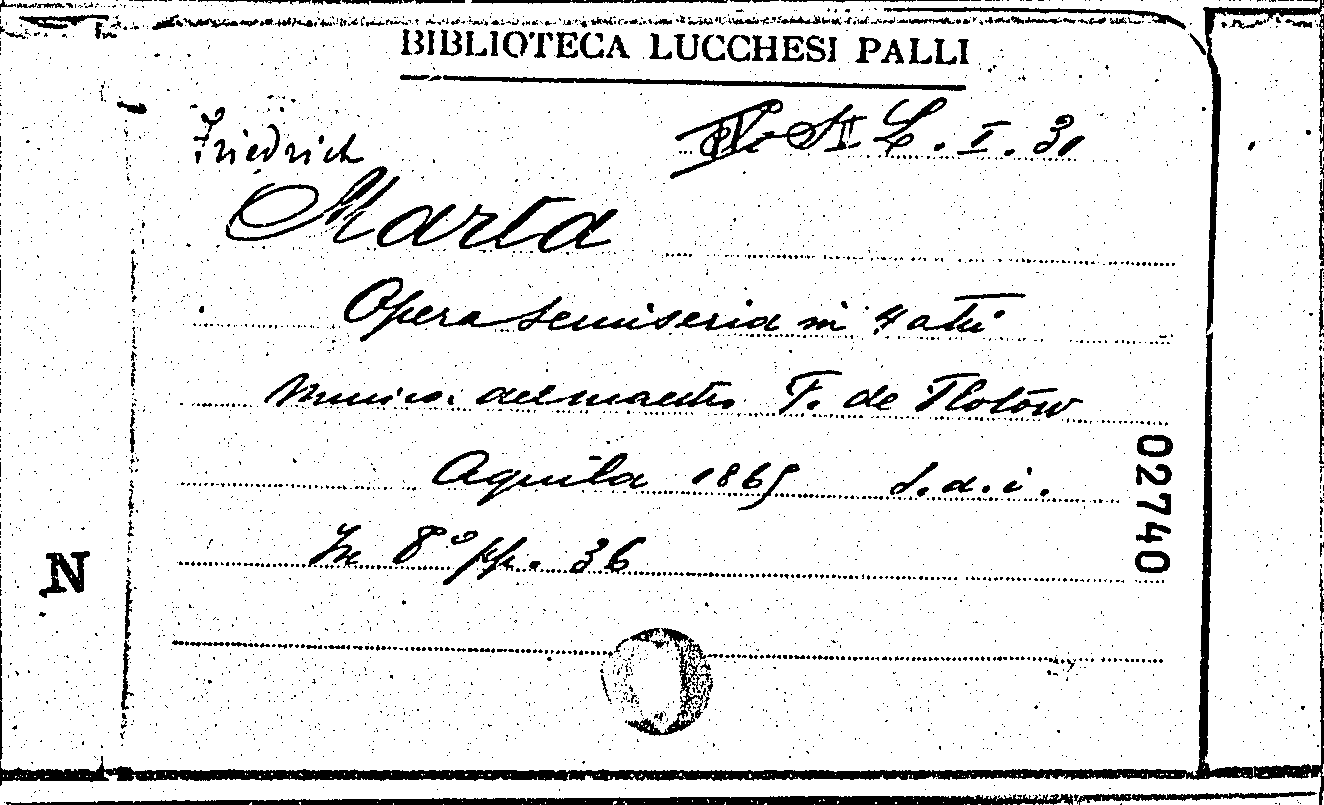 BIBLIOTECA LUCCHESI PALLI
Friedrich
L. I. 31
Marta
Opera semiseria in 4 atti
Musica del maestro F. de Flotow
Aquila 1865 s.d.i.
In 8º pp. 36
02740
N